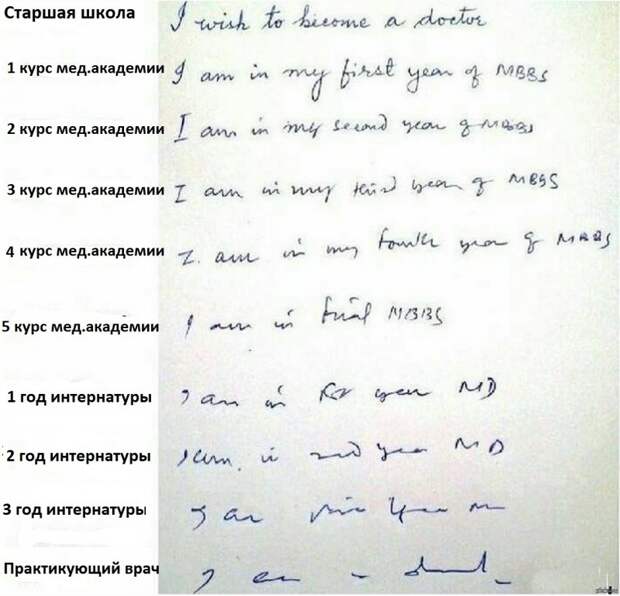 Старшая школа I wish to become a doctor
1 курс мед.академии I am in my first year of MBBS
2 курс мед.академии I am in my second year of MBBS
3 курс мед.академии I am in my third year of MBBS
4 курс мед.академии I am in my fourth year of MBBS
5 курс мед.академии I am in final MBBS
1 год интернатуры I am in year MD
2 год интернатуры I am in 2nd year MD
3 год интернатуры
Практикующий врач